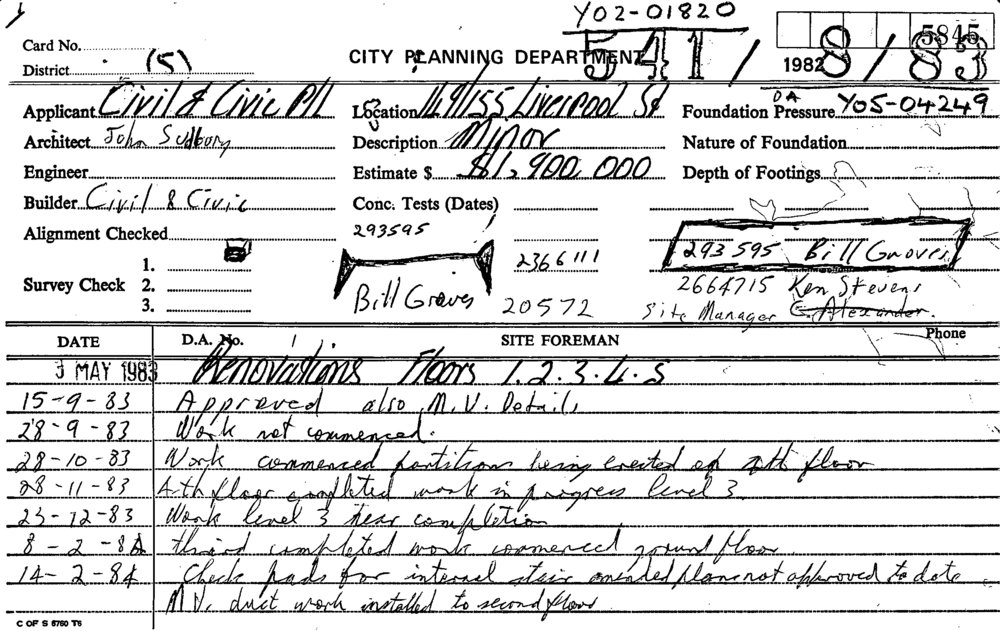 Y02-01820
5845
Card No.
541/8/83
CITY PLANNING DEPARTMENT
1982
District (5)
Applicant Civil & Civic P/L
Location 149/155 Liverpool St
Foundation Pressure
DA
Y05-04249
Architect John Sudbory
Description Minor
Nature of Foundation
Engineer
Estimate $ $1,900,000
Depth of Footings
Builder Civil & Civic
Conc. Tests (Dates)
Alignment Checked
293595
2366111
293595 Bill Groves
Survey Check 1.
2.
3.
Bill Groves
20572
2664715 Ken Stevens
Site Manager G. Alexander.
DATE D.A. No. SITE FOREMAN Phone
3 MAY 1983 Renovations Floors 1.2.3.4.5
15-9-83 Approved also M.V. Details
28-9-83 Work not commenced.
28-10-83 Work commenced partitions being erected on 4th floor
28-11-83 4th floor completed work in progress level 3.
23-12-83 Work level 3 near completion
8-2-84 third completed work commenced ground floor
14-2-84 Check pads for internal stair amended plans not approved to date.
M.V. duct work installed to second floor
C OF S 6760 T6